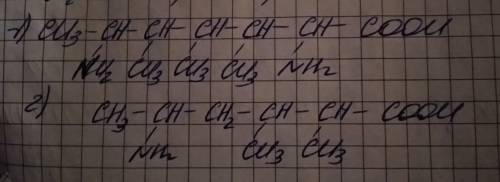 1) CH3-CH-CH-CH-CH-CH-COOH
NH2 CH3 CH3 CH3 NH2
2) CH3-CH-CH2-CH-CH-COOH
NH2 CH3 CH3